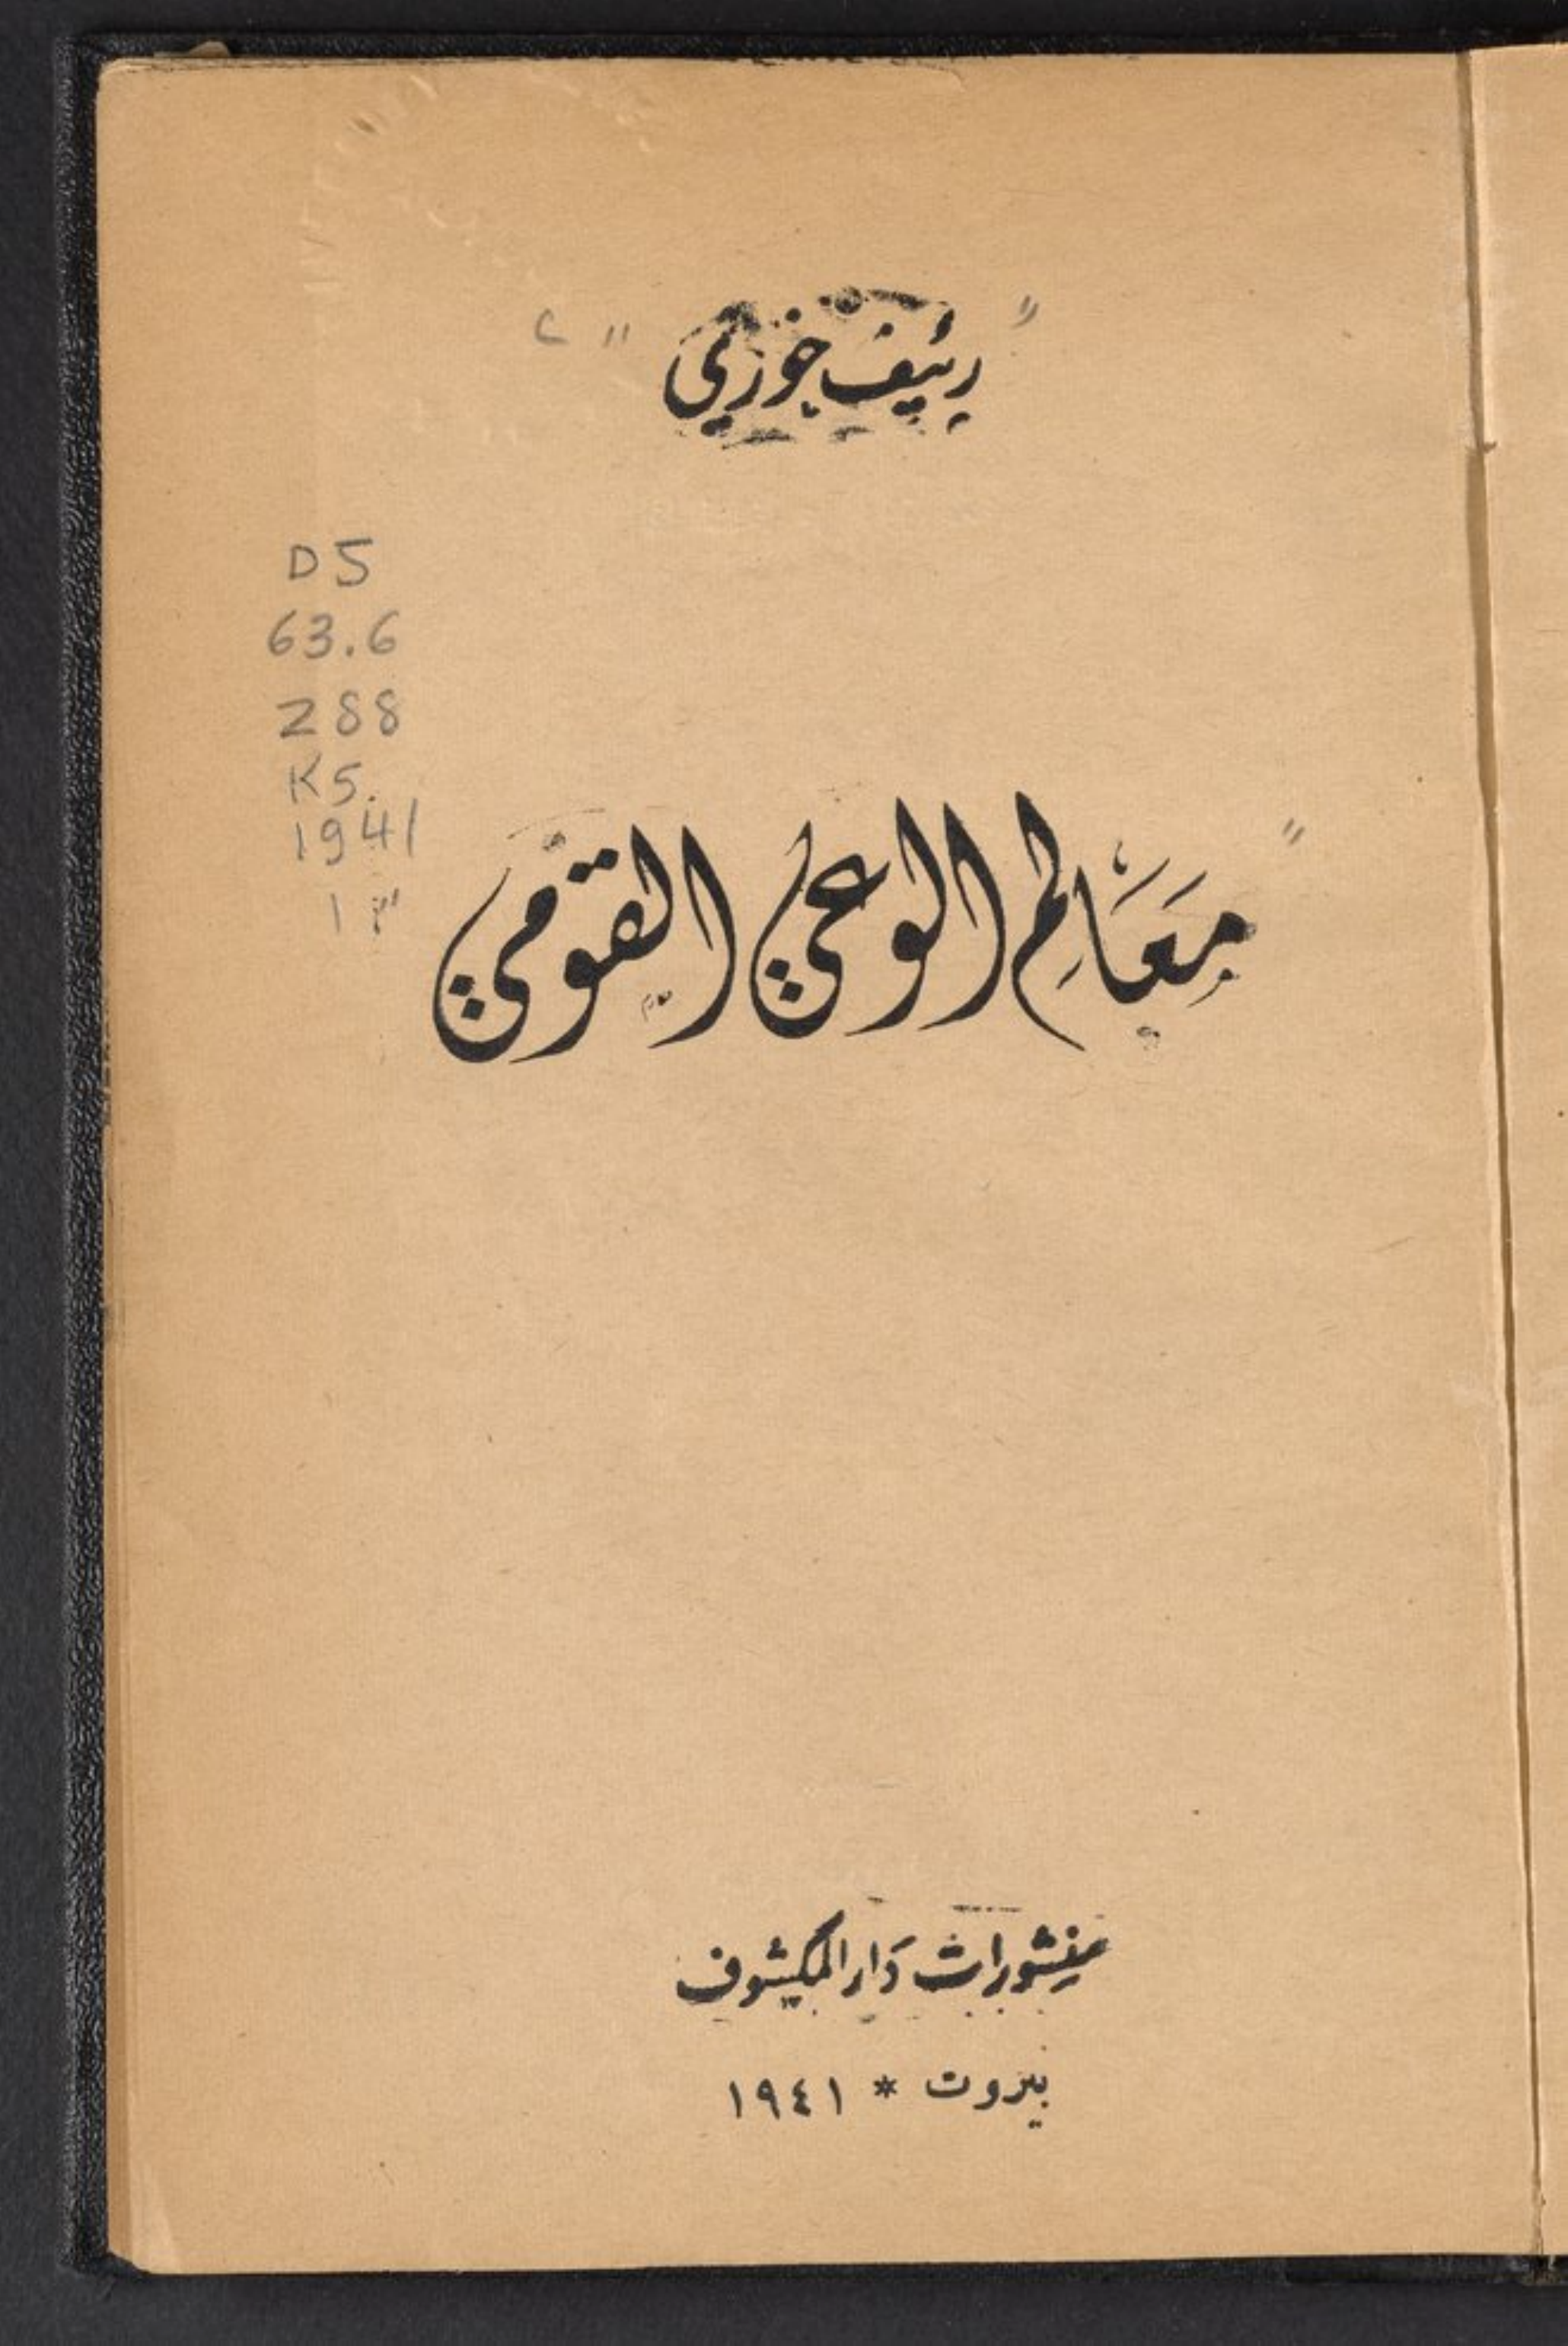 رئيف خوري
D5
63.6
Z88
K5
1941
مَعَالِم الوعي القومي
منشورات دَار المكشوف
بيروت * ١٩٤١